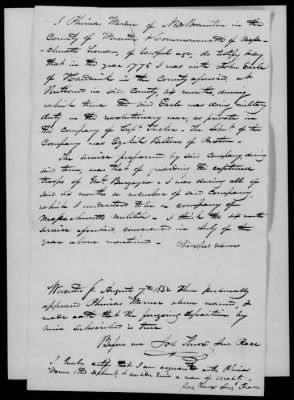 I Phinias Warner of New Braintree in the
County of Worcester & Commonwealth of Massa-
chusetts Yeoman, of lawful age, do testify & say
that in the year 1778 I was with John Earle
of Hardwick in the County aforesaid, at
Rutland in said County six months during
which time the said Earle was doing military
duty in the revolutionary war as private in
the Company of Capt. The Lieut. of the
Company was Ezekiel of
The service performed by said Company during
said term, was that of guarding the captured
troops of Genl. Burgoyne. I was during all of
said six months a member of said Company,
which I understood to be a company of
Massachusetts militia. I think the six months
service aforesaid, commenced in July of the
year above mentioned. Phinehas Warner
Worcester ss August 17th 1832 Then personally
appeared Phinias Warner above named, &
made oath that the foregoing deposition by
him subscribed is true
Before me Jos. Knox Jus. Peace
I hereby certify that I am acquainted with Phinias
Warner & that he is a man of veracity
Jos. Knox Jus. Peace